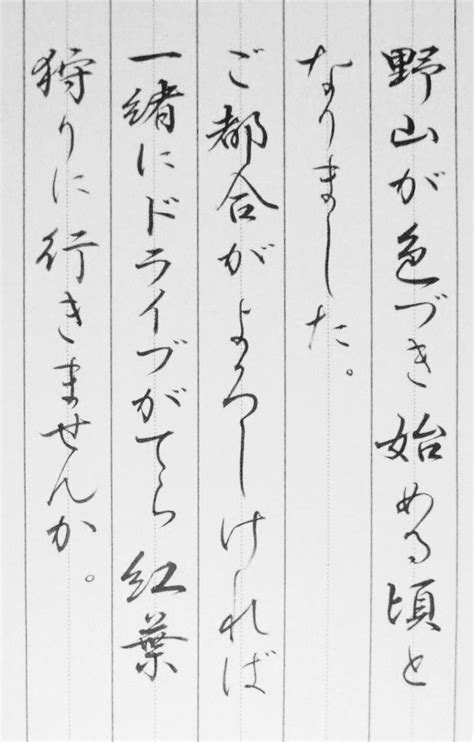 野山が色づき始める頃と
なりました。
ご都合がよろしければ
一緒にドライブがてら紅葉
狩りに行きませんか。